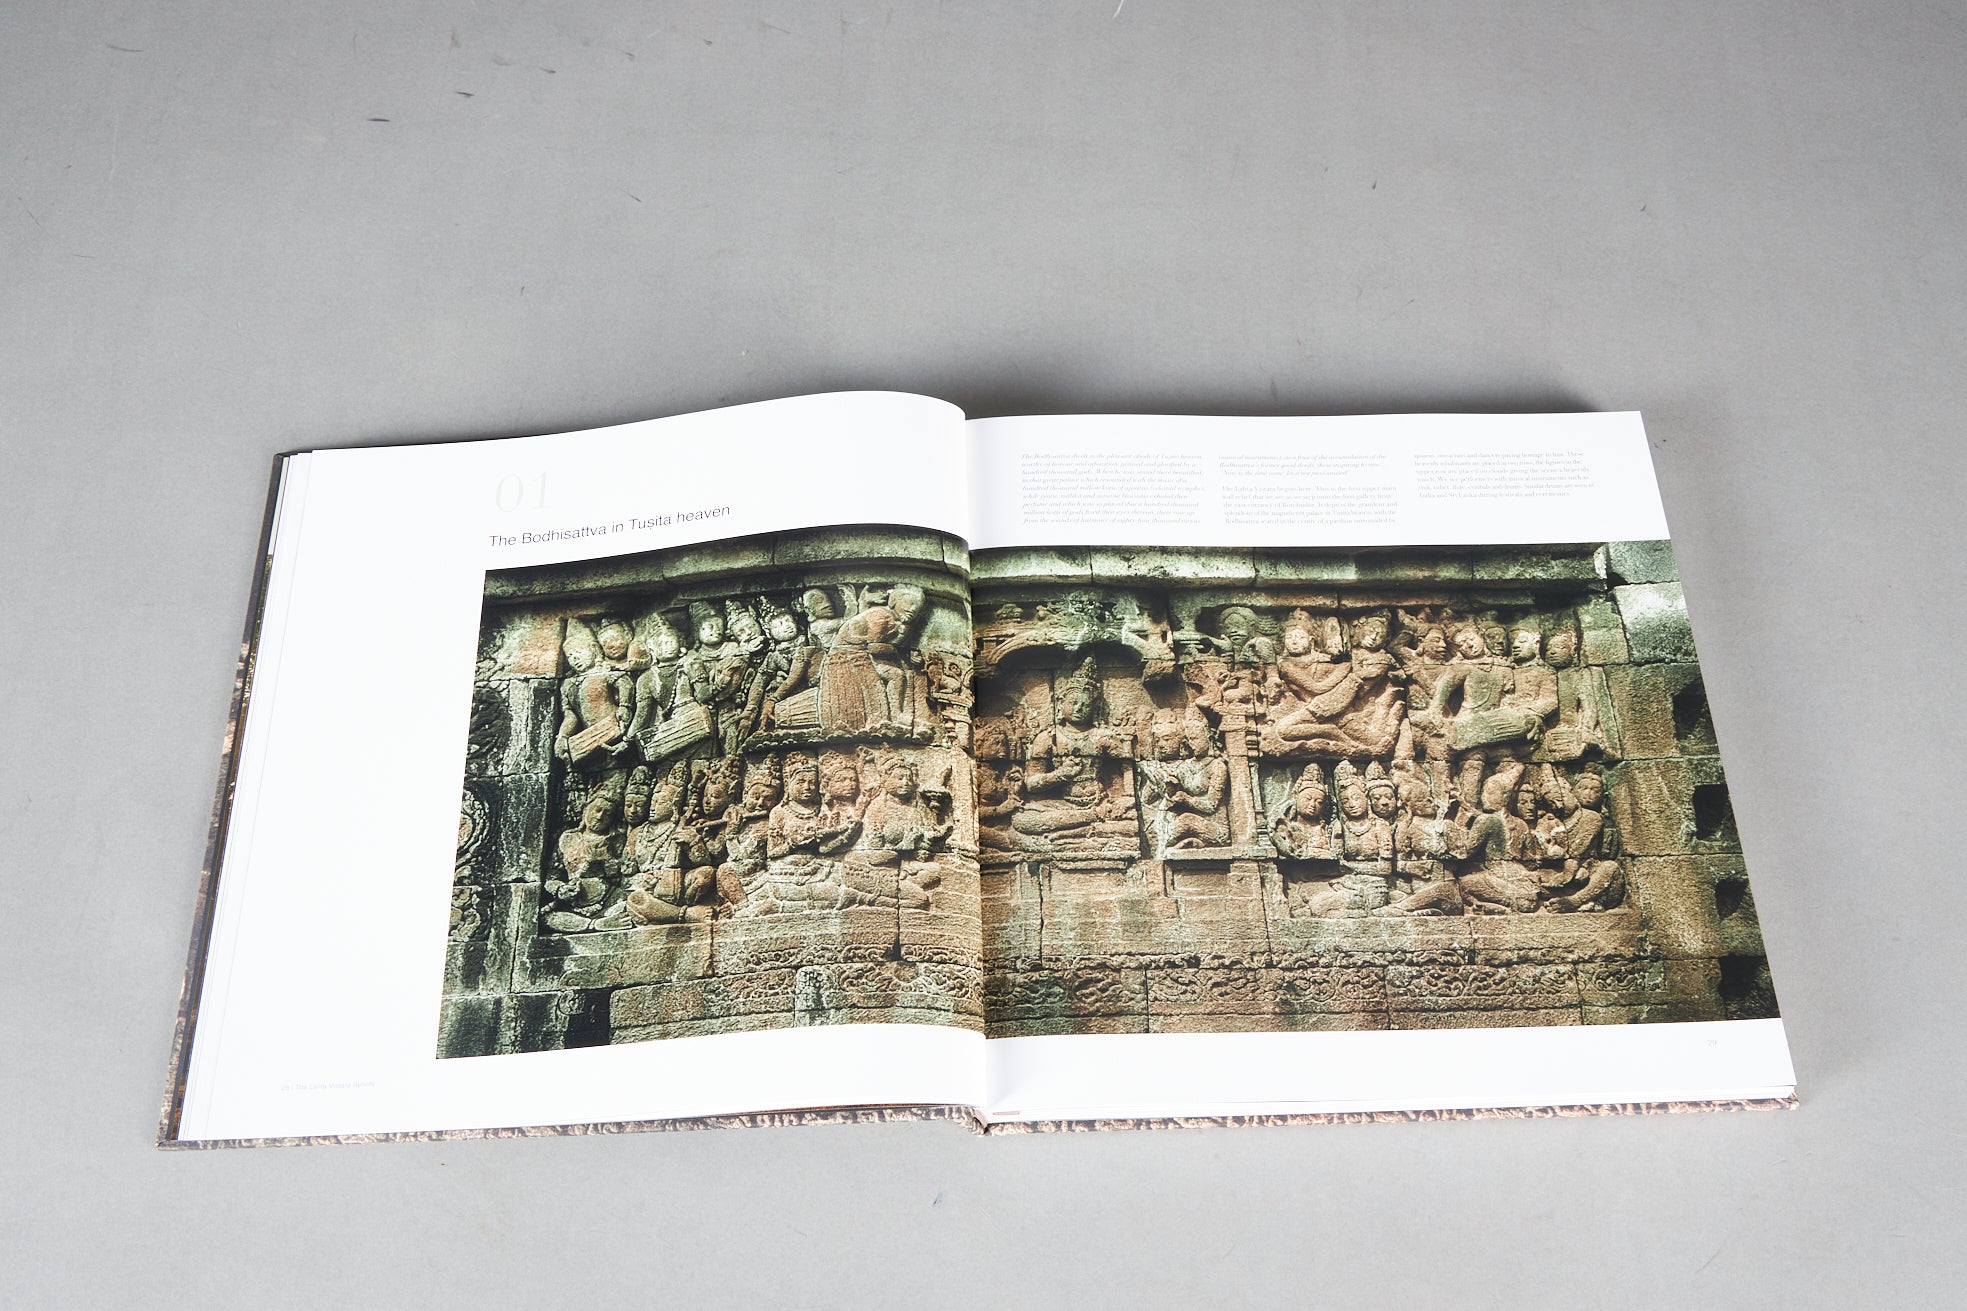 01
The Bodhisattva in Tuṣita heaven
The Bodhisattva dwelt in the pleasant abode of Tuṣita heaven,
worthy of honour and adoration, praised and glorified by a
hundred thousand gods.
in that great palace which resounded with the music of a
hundred thousand million
perfume and which was so placed that a hundred thousand
million
from the sounds of harmony of eighty-four thousand
(musical instruments), as a fruit of the accumulation of the
Bodhisattva's former good deeds, these inspiring hymns...
"Now is the time come, let it not pass unused"
The Lalita Vistara begins here. This is the first upper main
wall relief that we see as we step onto the first gallery from
the east entrance of Borobudur. It depicts the grandeur and
splendour of the magnificent palace in Tuṣita heaven, with the
Bodhisattva seated in the centre of a pavilion surrounded by
musicians and dancers paying homage to him. These
heavenly inhabitants are placed in two rows, the figures in the
upper row are placed on clouds giving the scene a heavenly
touch. We see performers with musical instruments such as
flute, cymbals and drums. Similar drums are seen in
India and Sri Lanka during festivals and ceremonies.
28 | The Lalita Vistara Reliefs
29